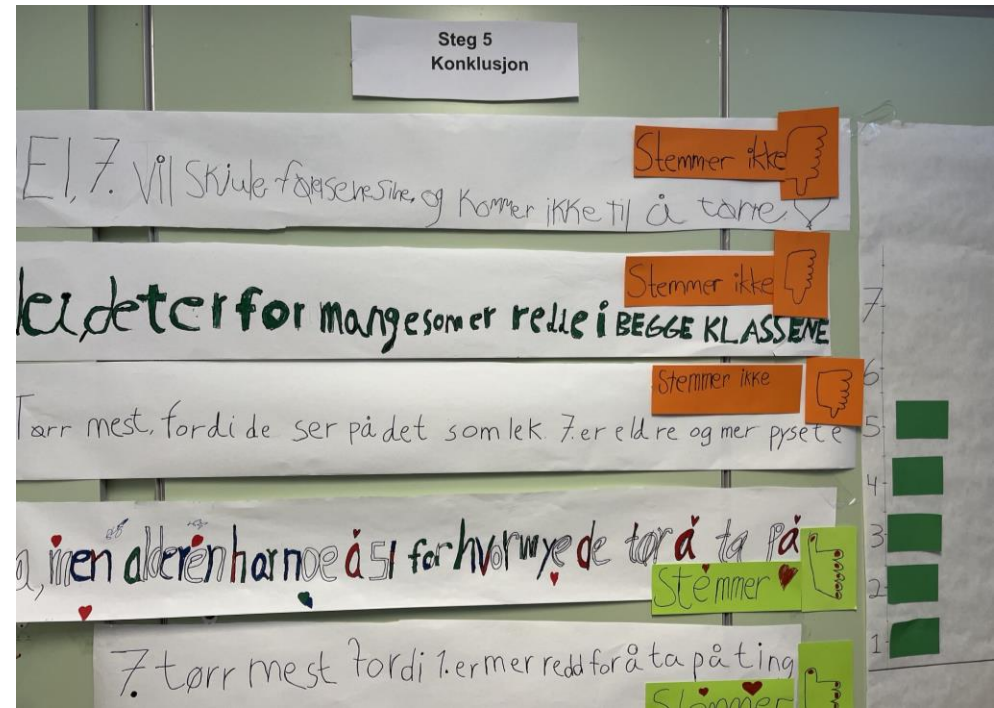 Steg 5
Konklusjon
El, 7. vil skjule følsenesine, og kommer ikke til å tørre
Stemmer ikke
det er for mange som er redde i BEGGE KLASSENE
Stemmer ikke
Tørr mest, fordi de ser på det som lek. 7. er eldre og mer pysete
Stemmer ikke
a, men alderen har noe å si for hvor mye de tør å ta på
Stemmer
7. tørr mest fordi 1. er mer redd for å ta på ting
Stemmer
7
6
5
4
3
2
1